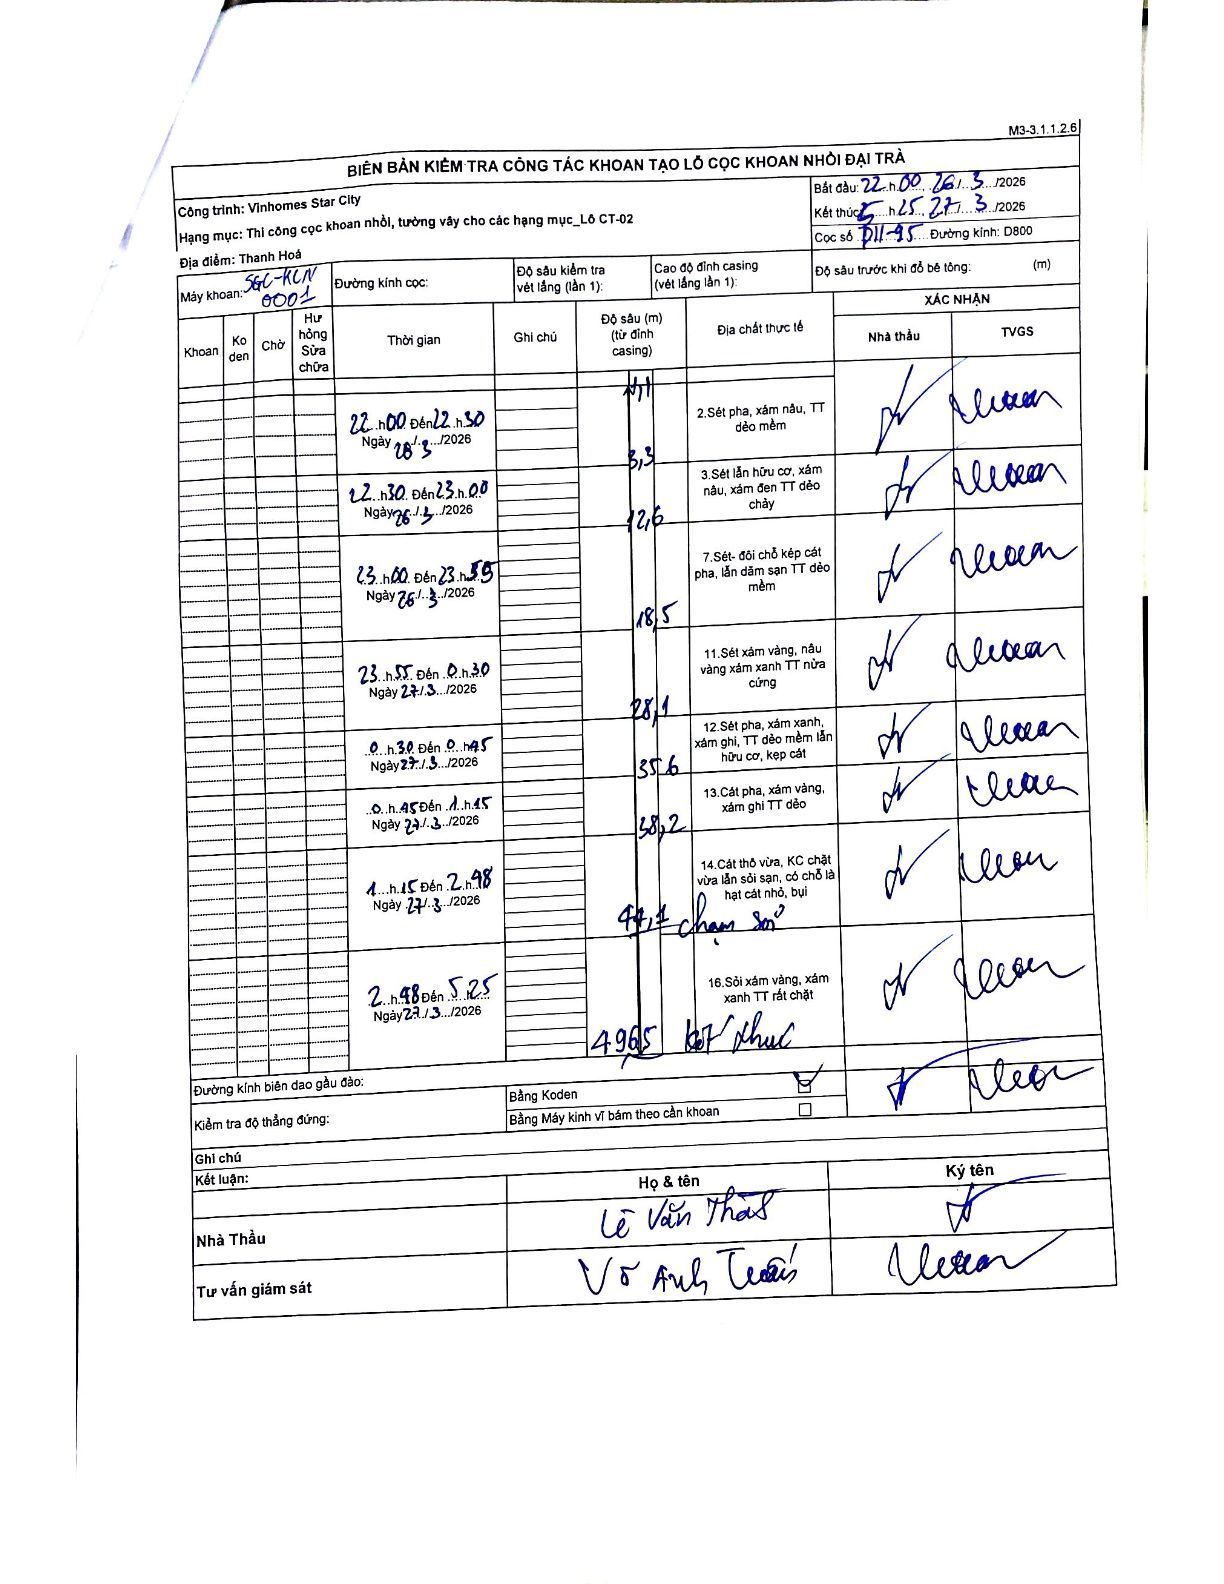 M3-3.1.1.2.6
BIÊN BẢN KIỂM TRA CÔNG TÁC KHOAN TẠO LỖ CỌC KHOAN NHỒI ĐẠI TRÀ
Công trình: Vinhomes Star City
Hạng mục: Thi công cọc khoan nhồi, tường vây cho các hạng mục_Lô CT-02
Địa điểm: Thanh Hoá
Bắt đầu: 22 h 00, 26/ 3 /2026
Kết thúc 5 h 25, 27/ 3 /2026
Cọc số Đường kính: D800
Máy khoan: SGC-KCN 0001
Đường kính cọc:
Độ sâu kiểm tra vét lắng (lần 1):
Cao độ đỉnh casing (vét lắng lần 1):
Độ sâu trước khi đổ bê tông: (m)
Khoan
Ko den
Chờ
Hư hỏng Sửa chữa
Thời gian
Ghi chú
Độ sâu (m) (từ đỉnh casing)
Địa chất thực tế
XÁC NHẬN
Nhà thầu
TVGS
22 h 00 Đến 22 h 30
Ngày /3 /2026
3,3
2.Sét pha, xám nâu, TT dẻo mềm
22 h 30 Đến 23 h 00
Ngày 26 / 3 /2026
12,6
3.Sét lẫn hữu cơ, xám nâu, xám đen TT dẻo chảy
23 h 00 Đến 23 h 55
Ngày 26 / 3 /2026
18,5
7.Sét- đôi chỗ kép cát pha, lẫn dăm sạn TT dẻo mềm
23 h 55 Đến 0 h 30
Ngày 27 / 3 /2026
28,1
11.Sét xám vàng, nâu vàng xám xanh TT nửa cứng
0 h 30 Đến 0 h 45
Ngày 27 / 3 /2026
35,6
12.Sét pha, xám xanh, xám ghi, TT dẻo mềm lẫn hữu cơ, kẹp cát
0 h 45 Đến 1 h 15
Ngày 27 / 3 /2026
38,2
13.Cát pha, xám vàng, xám ghi TT dẻo
1 h 15 Đến 2 h 48
Ngày 27 / 3 /2026
44,1 chạm sỏi
14.Cát thô vừa, KC chặt vừa lẫn sỏi sạn, có chỗ là hạt cát nhỏ, bụi
2 h 48 Đến 5 25
Ngày 27 / 3 /2026
16.Sỏi xám vàng, xám xanh TT rất chặt
kết thúc
Đường kính biên dao gầu đào:
Kiểm tra độ thẳng đứng:
Bằng Koden
Bằng Máy kinh vĩ bám theo cần khoan
Ghi chú
Kết luận:
Họ & tên
Ký tên
Nhà Thầu
Lê Văn
Tư vấn giám sát
Võ Anh Tuấn